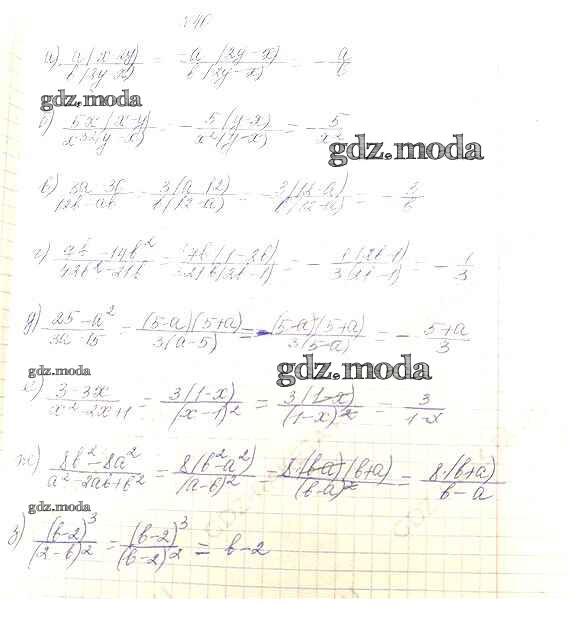 а) a(x-2y)/b(2y-x) = -a(2y-x)/b(2y-x) = -a/b
gdz.moda
б) 5x(x-y)/x³(y-x) = -5(y-x)/x²(y-x) = -5/x²
gdz.moda
в) 3a-36/12b-ab = 3(a-12)/b(12-a) = -3(12-a)/b(12-a) = -3/b
г) 7b-14b²/42b²-21b = 7b(1-2b)/21b(2b-1) = -1(2b-1)/3(2b-1) = -1/3
д) 25-a²/3a-15 = (5-a)(5+a)/3(a-5) = -(5-a)(5+a)/3(5-a) = -5+a/3
gdz.moda
gdz.moda
е) 3-3x/x²-2x+1 = 3(1-x)/(x-1)² = 3(1-x)/(1-x)² = 3/1-x
ж) 8b²-8a²/a²-2ab+b² = 8(b²-a²)/(a-b)² = 8·(b-a)(b+a)/(b-a)² = 8·(b+a)/b-a
gdz.moda
з) (b-2)³/(2-b)² = (b-2)³/(b-2)² = b-2